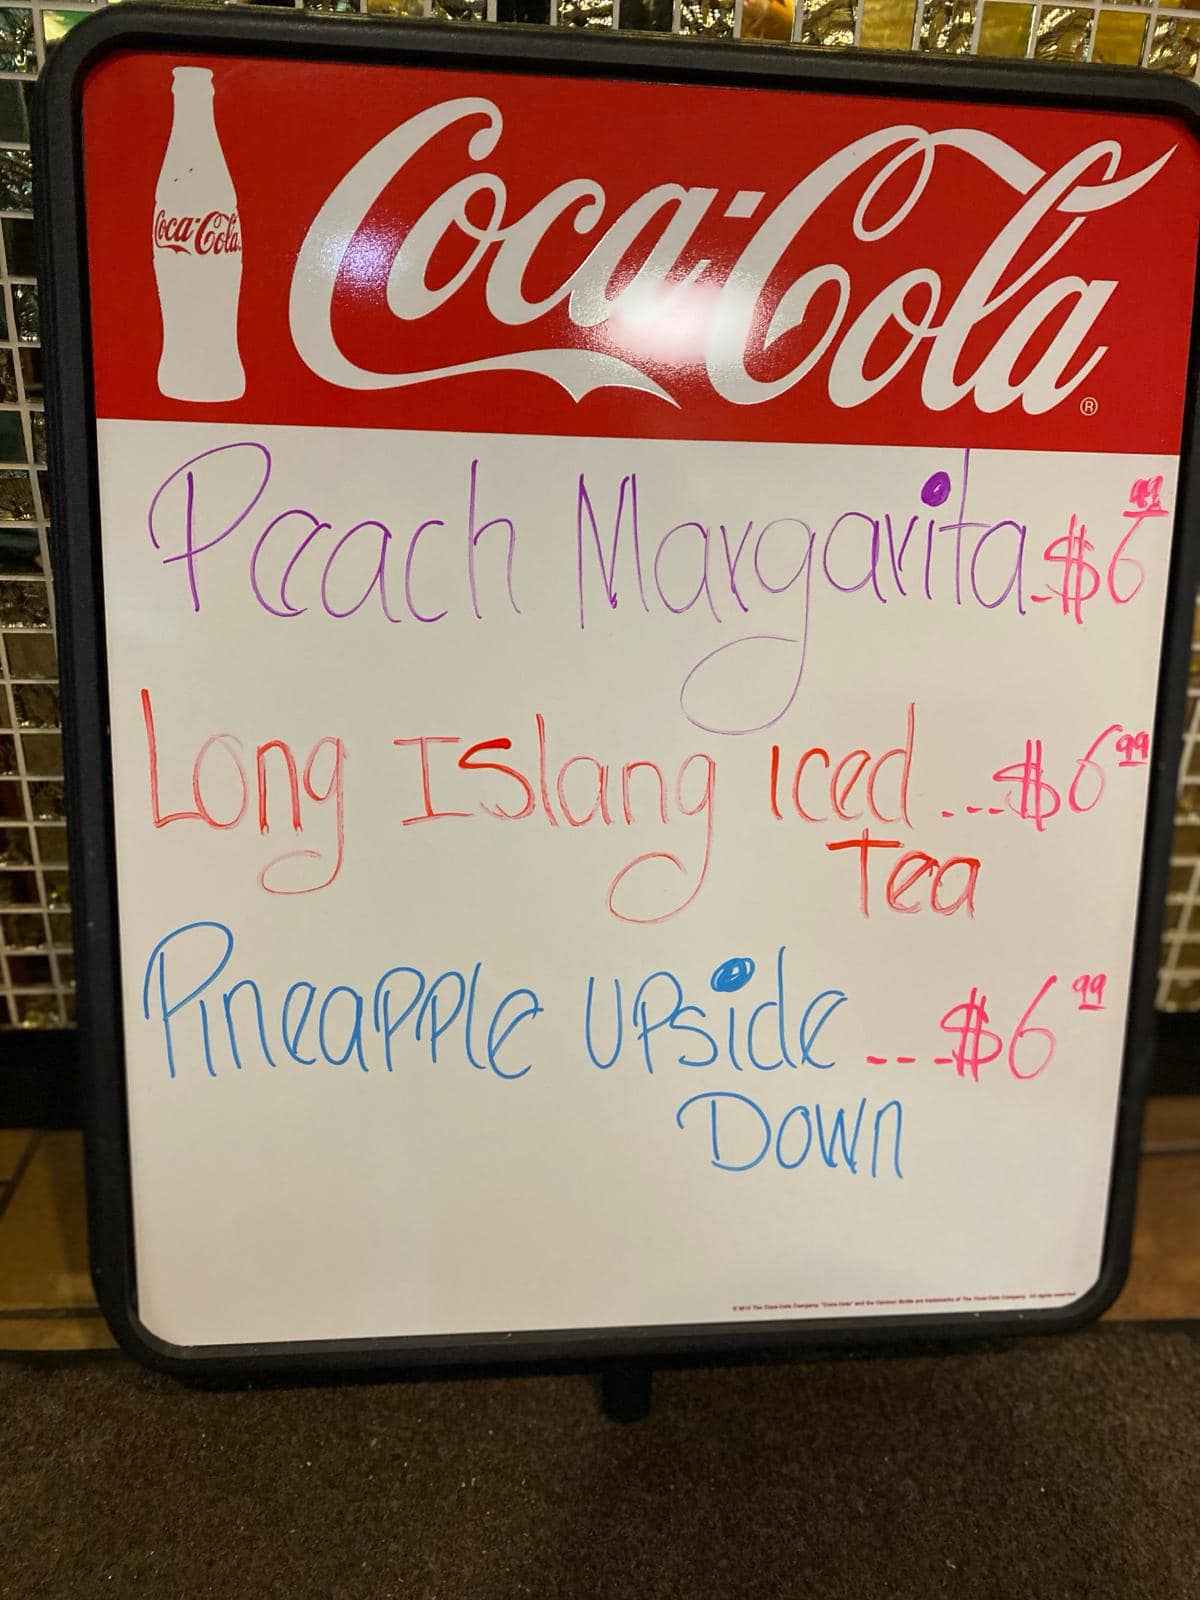 Coca-Cola
Coca-Cola®
Peach Margarita.$6 99
Long Islang Iced ...$6 99
Tea
Pineapple Upside ...$6 99
Down